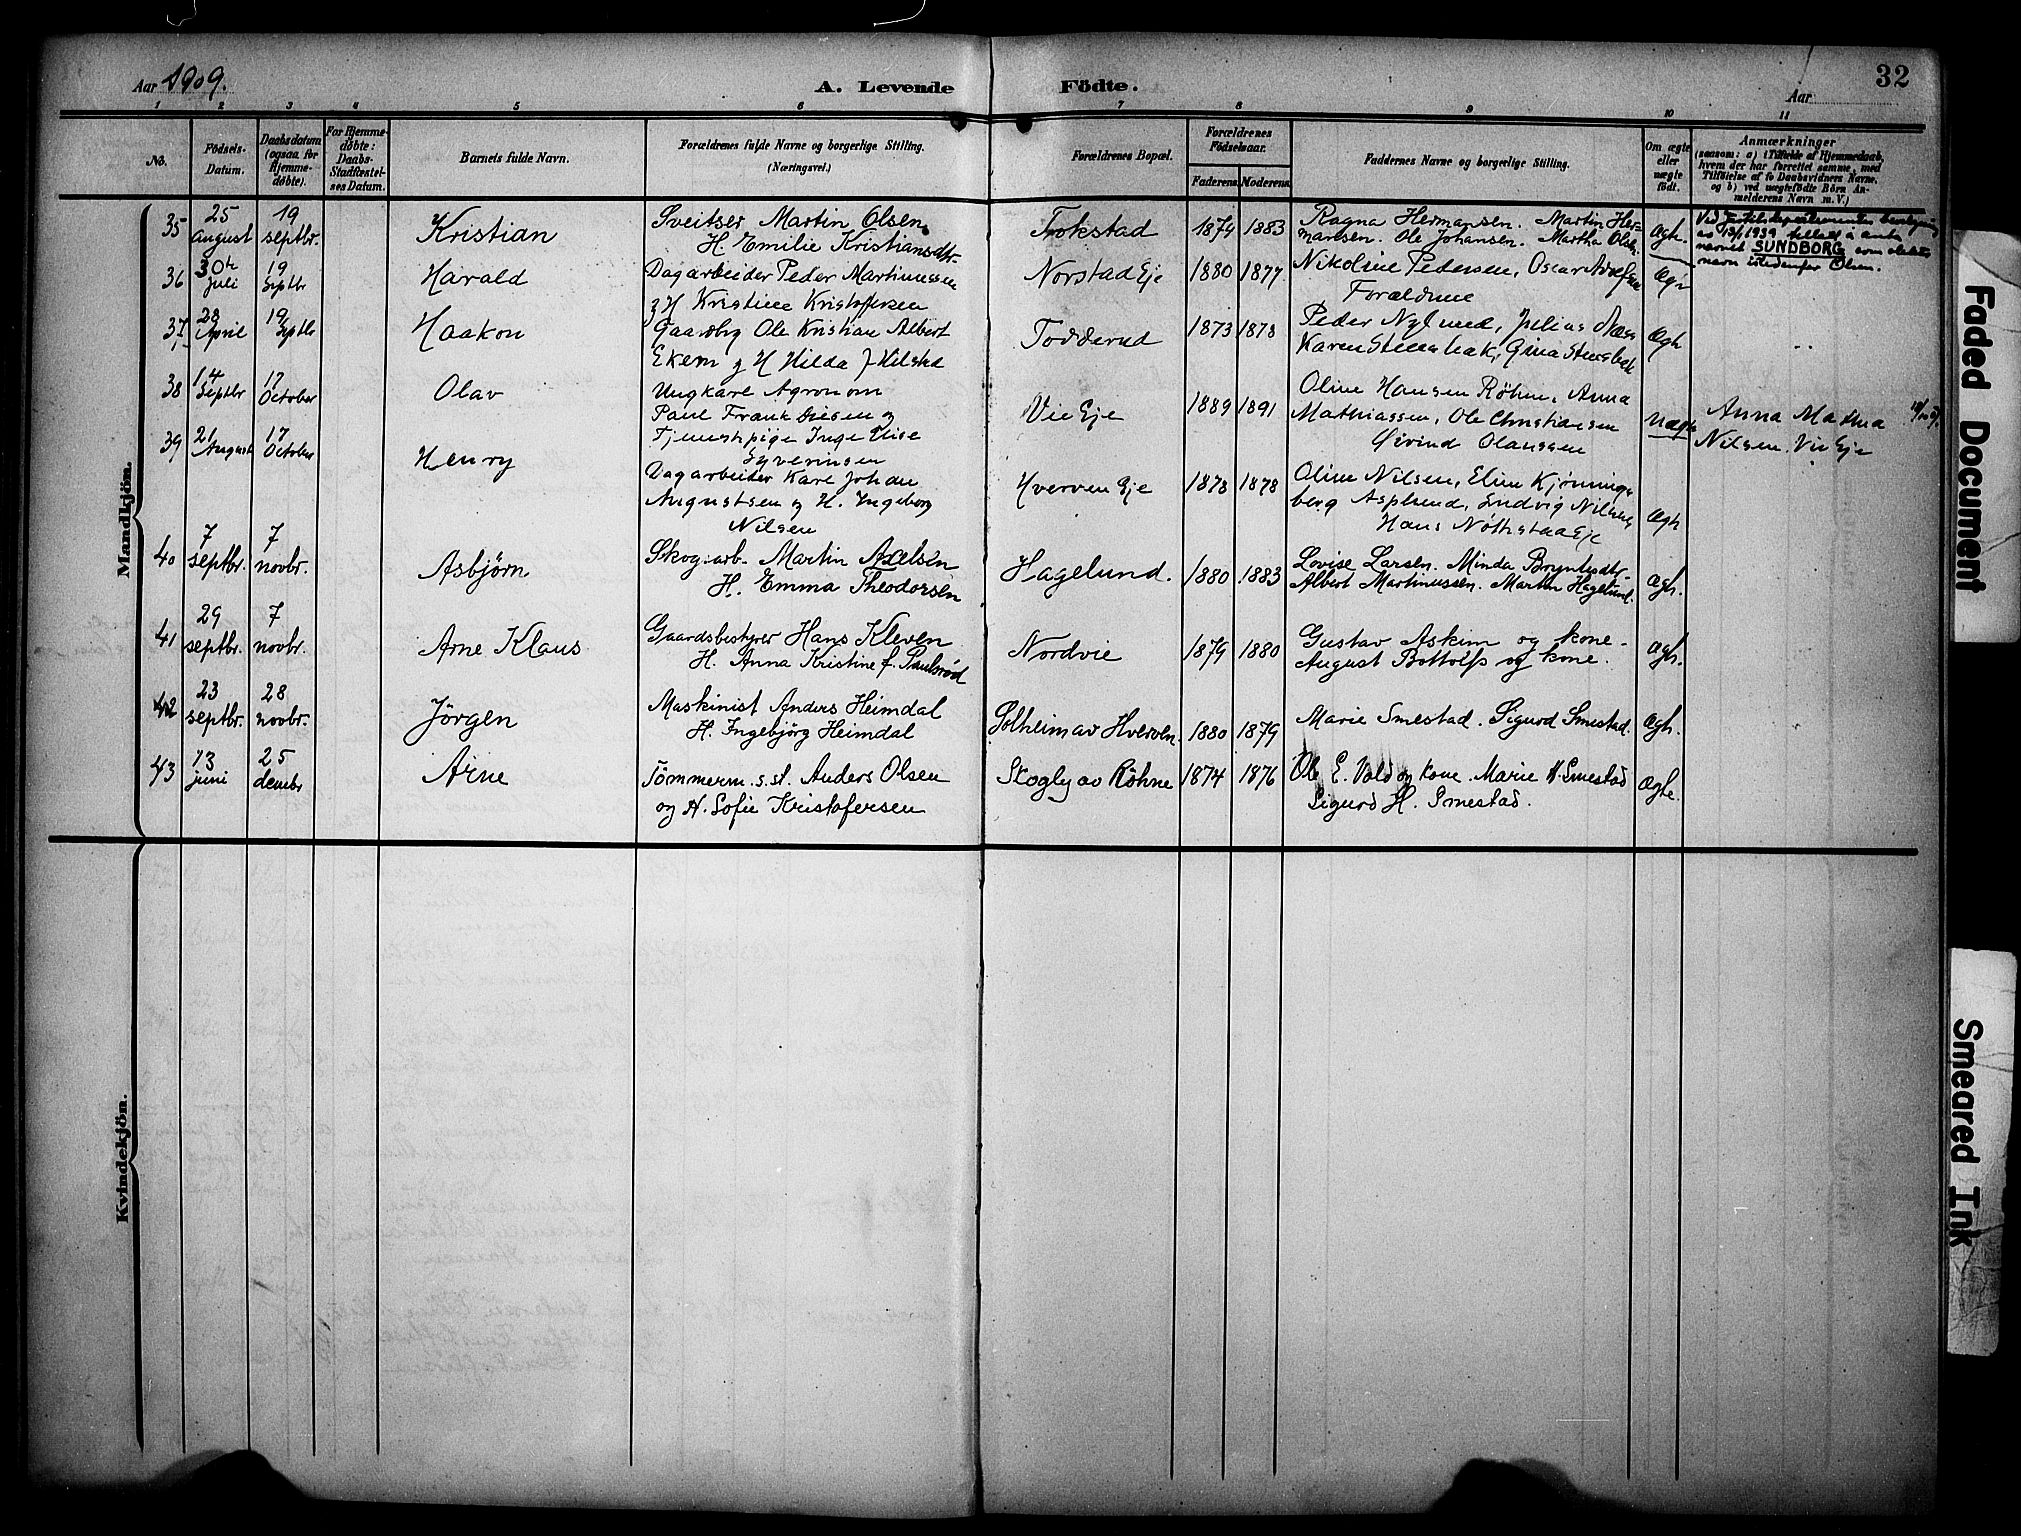 Aar 1909.
A. Levende Födte.
Aar
32
1 2 3 4 5 6 7 8 9 10 11
No.
Födsels-Datum.
Daabsdatum (ogsaa for Hjemme-døbte).
For Hjemme-døbte: Daabs-Stadfæstel-ses Datum.
Barnets fulde Navn.
Forældrenes fulde Navne og borgerlige Stilling.
(Næringsvei.)
Forældrenes Bopæl.
Forældrenes Födselsaar.
Faderens. Moderens.
Faddernes Navne og borgerlige Stilling.
Om ægte eller uægte födt.
Anmærkninger
(saasom: a) i Tilfælde af Hjemmedaab,
hvem der har forrettet samme, med
Tilföielse af to Daabsvidners Navne,
og b) ved uægtefödte Börn An-
melderens Navn m. V.)
Mandkjön.
35 25 august 19 septbr. Kristian
Sveitser Martin Olsen
H. Emilie Kristiansdtr.
Trokstad 1874 1883
Ragna Hermansen. Martin Her-
mansen. Ole Johansen. Martha Olsen
Ægh.
1939
navnet SUNDBORG som slekts-
navn istedenfor Olsen.
36 30te juli 19 Septbr Harald
Dagarbeider Peder Martinussen
g H Kristine Kristofersen
Norstad Eje 1880 1877
Nikoline Pedersen, Oscar
Forældrene
37 28 April 19 Septbr Haakon
Gaardbr Ole Kristian Albert
Ekem g H Hilda f Hilstad
Todderud 1873 1878
Peder Nylund, Julius Næss
Karen Steensbak, Gina Stensbak
Ægh
38 14 Septbr 17 October Olav
Ungkarl Agronom
Paul Frank Diesen og
Tjenestepige Inge Elise
Syverinsen
Vie Eje 1889 1891
Oline Hansen Röhne, Anna
Mathiassen, Ole Christiansen
Øivind Olaussen
Uægte
Anna Mathea
Nilsen. Vie Eje
39 21 August 17 October Henry
Dagarbeider Karl Johan
Augustsen og H. Ingeborg
Nilsen
Hverven Eje 1878 1878
Oline Nilsen, Eline Kjønnings
berg Asplund, Ludvig Nilsen,
Hans Nøthstad Eje
Ægh
40 7 septbr. 7 novbr. Asbjørn
Skog.arb. Martin Axelsen
H. Emma Theodorsen
Hagelund. 1880 1883
Lovise Larsen. Minda Bryntesdtr.
Albert Martinussen. Martin Hagelund.
Ægh.
41 29 septbr. 7 novbr. Arne Klaus
Gaardsbestyrer Hans Kleven
H. Anna Kristine f. Paulsrød
Nordvie 1879 1880
Gustav Askim og kone.
August Bottolfs og kone.
Ægh.
42 23 septbr. 28 novbr. Jörgen
Maskinist Anders Heimdal
H. Ingebjörg Heimdal
Solheim av Hverven. 1880 1879
Marie Smestad. Sigurd Smestad.
Ægh.
43 13 juni 25 dembr Arne
Tömmerm. s. st. Anders Olsen
og H. Sofie Kristofersen
Skogly av Röhne 1874 1876
Ole E. Vold og kone. Marie H. Smestad
Sigurd H. Smestad.
Ægte.
Kvindekjön.
Faded Document
Smeared Ink